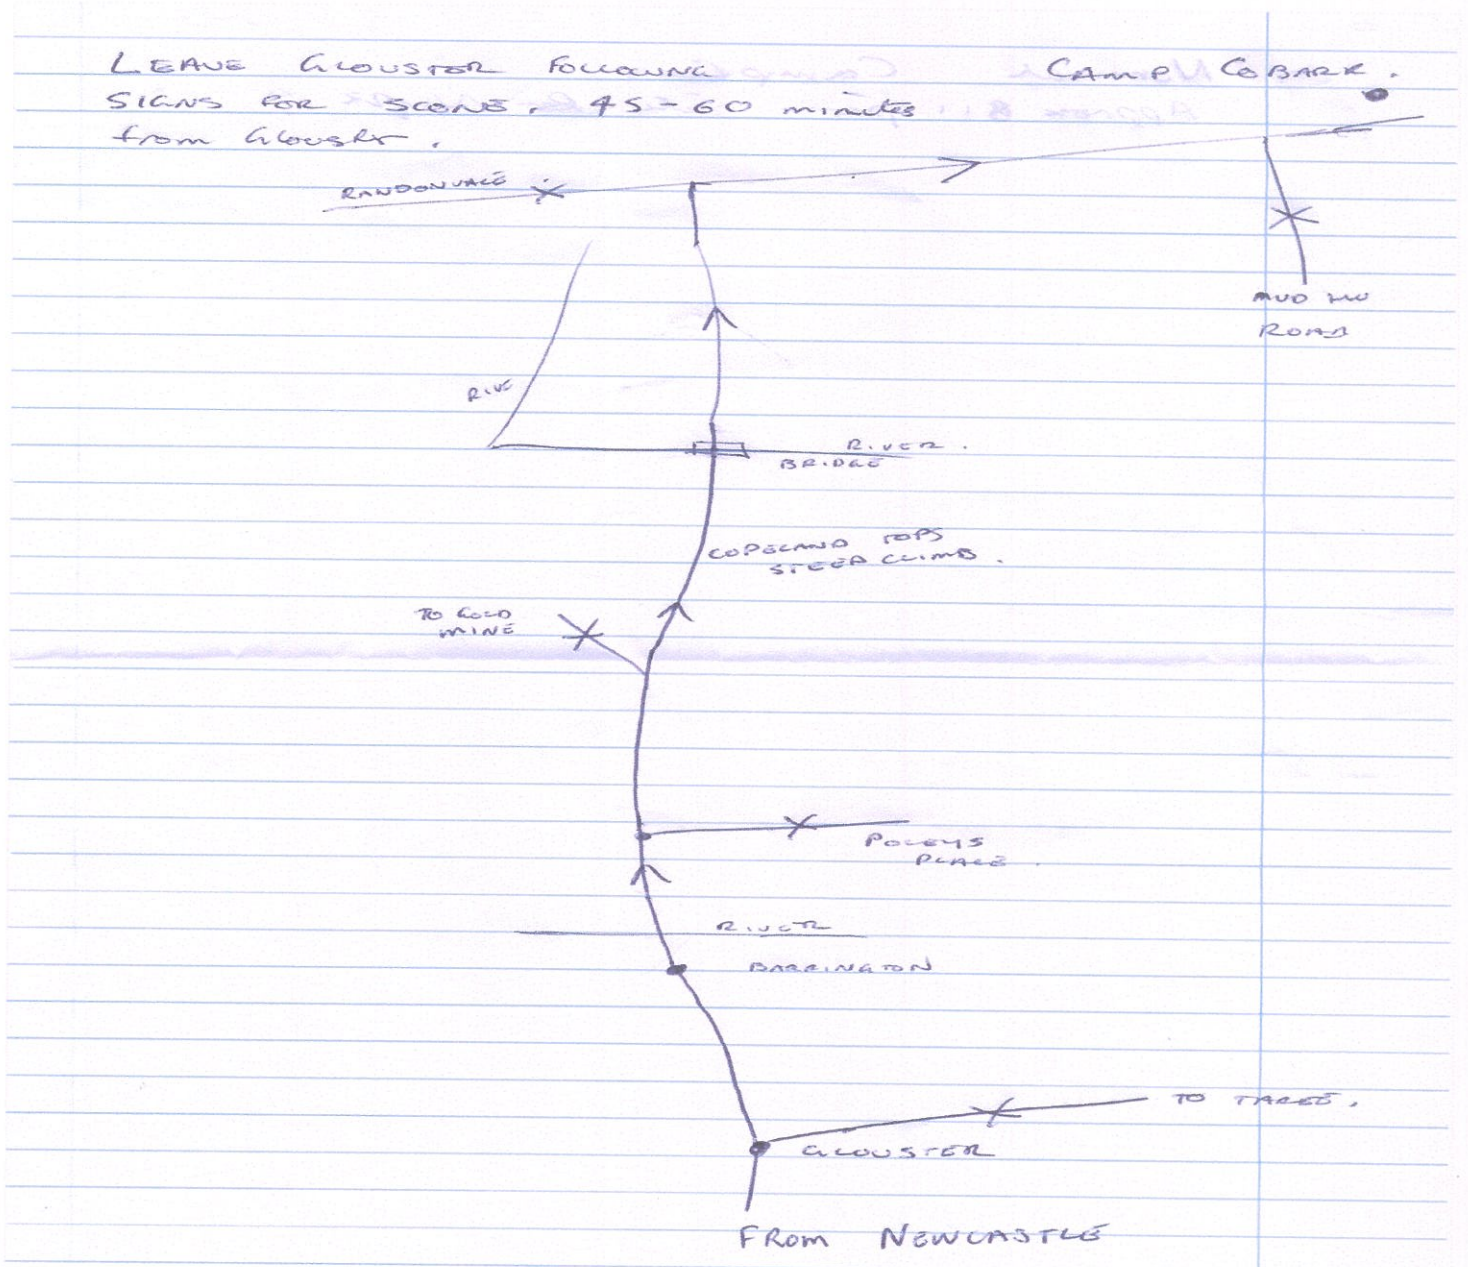 LEAVE GLOUSTER FOLLOWING
SIGNS FOR SCONE. 45-60 minutes
from Glouster.
CAMP COBARK.
RANDONVALE
MUD HU
ROAD
RIVE
RIVER.
BRIDGE
COPELAND TOPS
STEEP CLIMB.
TO GOLD
MINE
POLEYS
PLACE.
RIVER
BARRINGTON
TO TAREE.
GLOUSTER
FROM NEWCASTLE